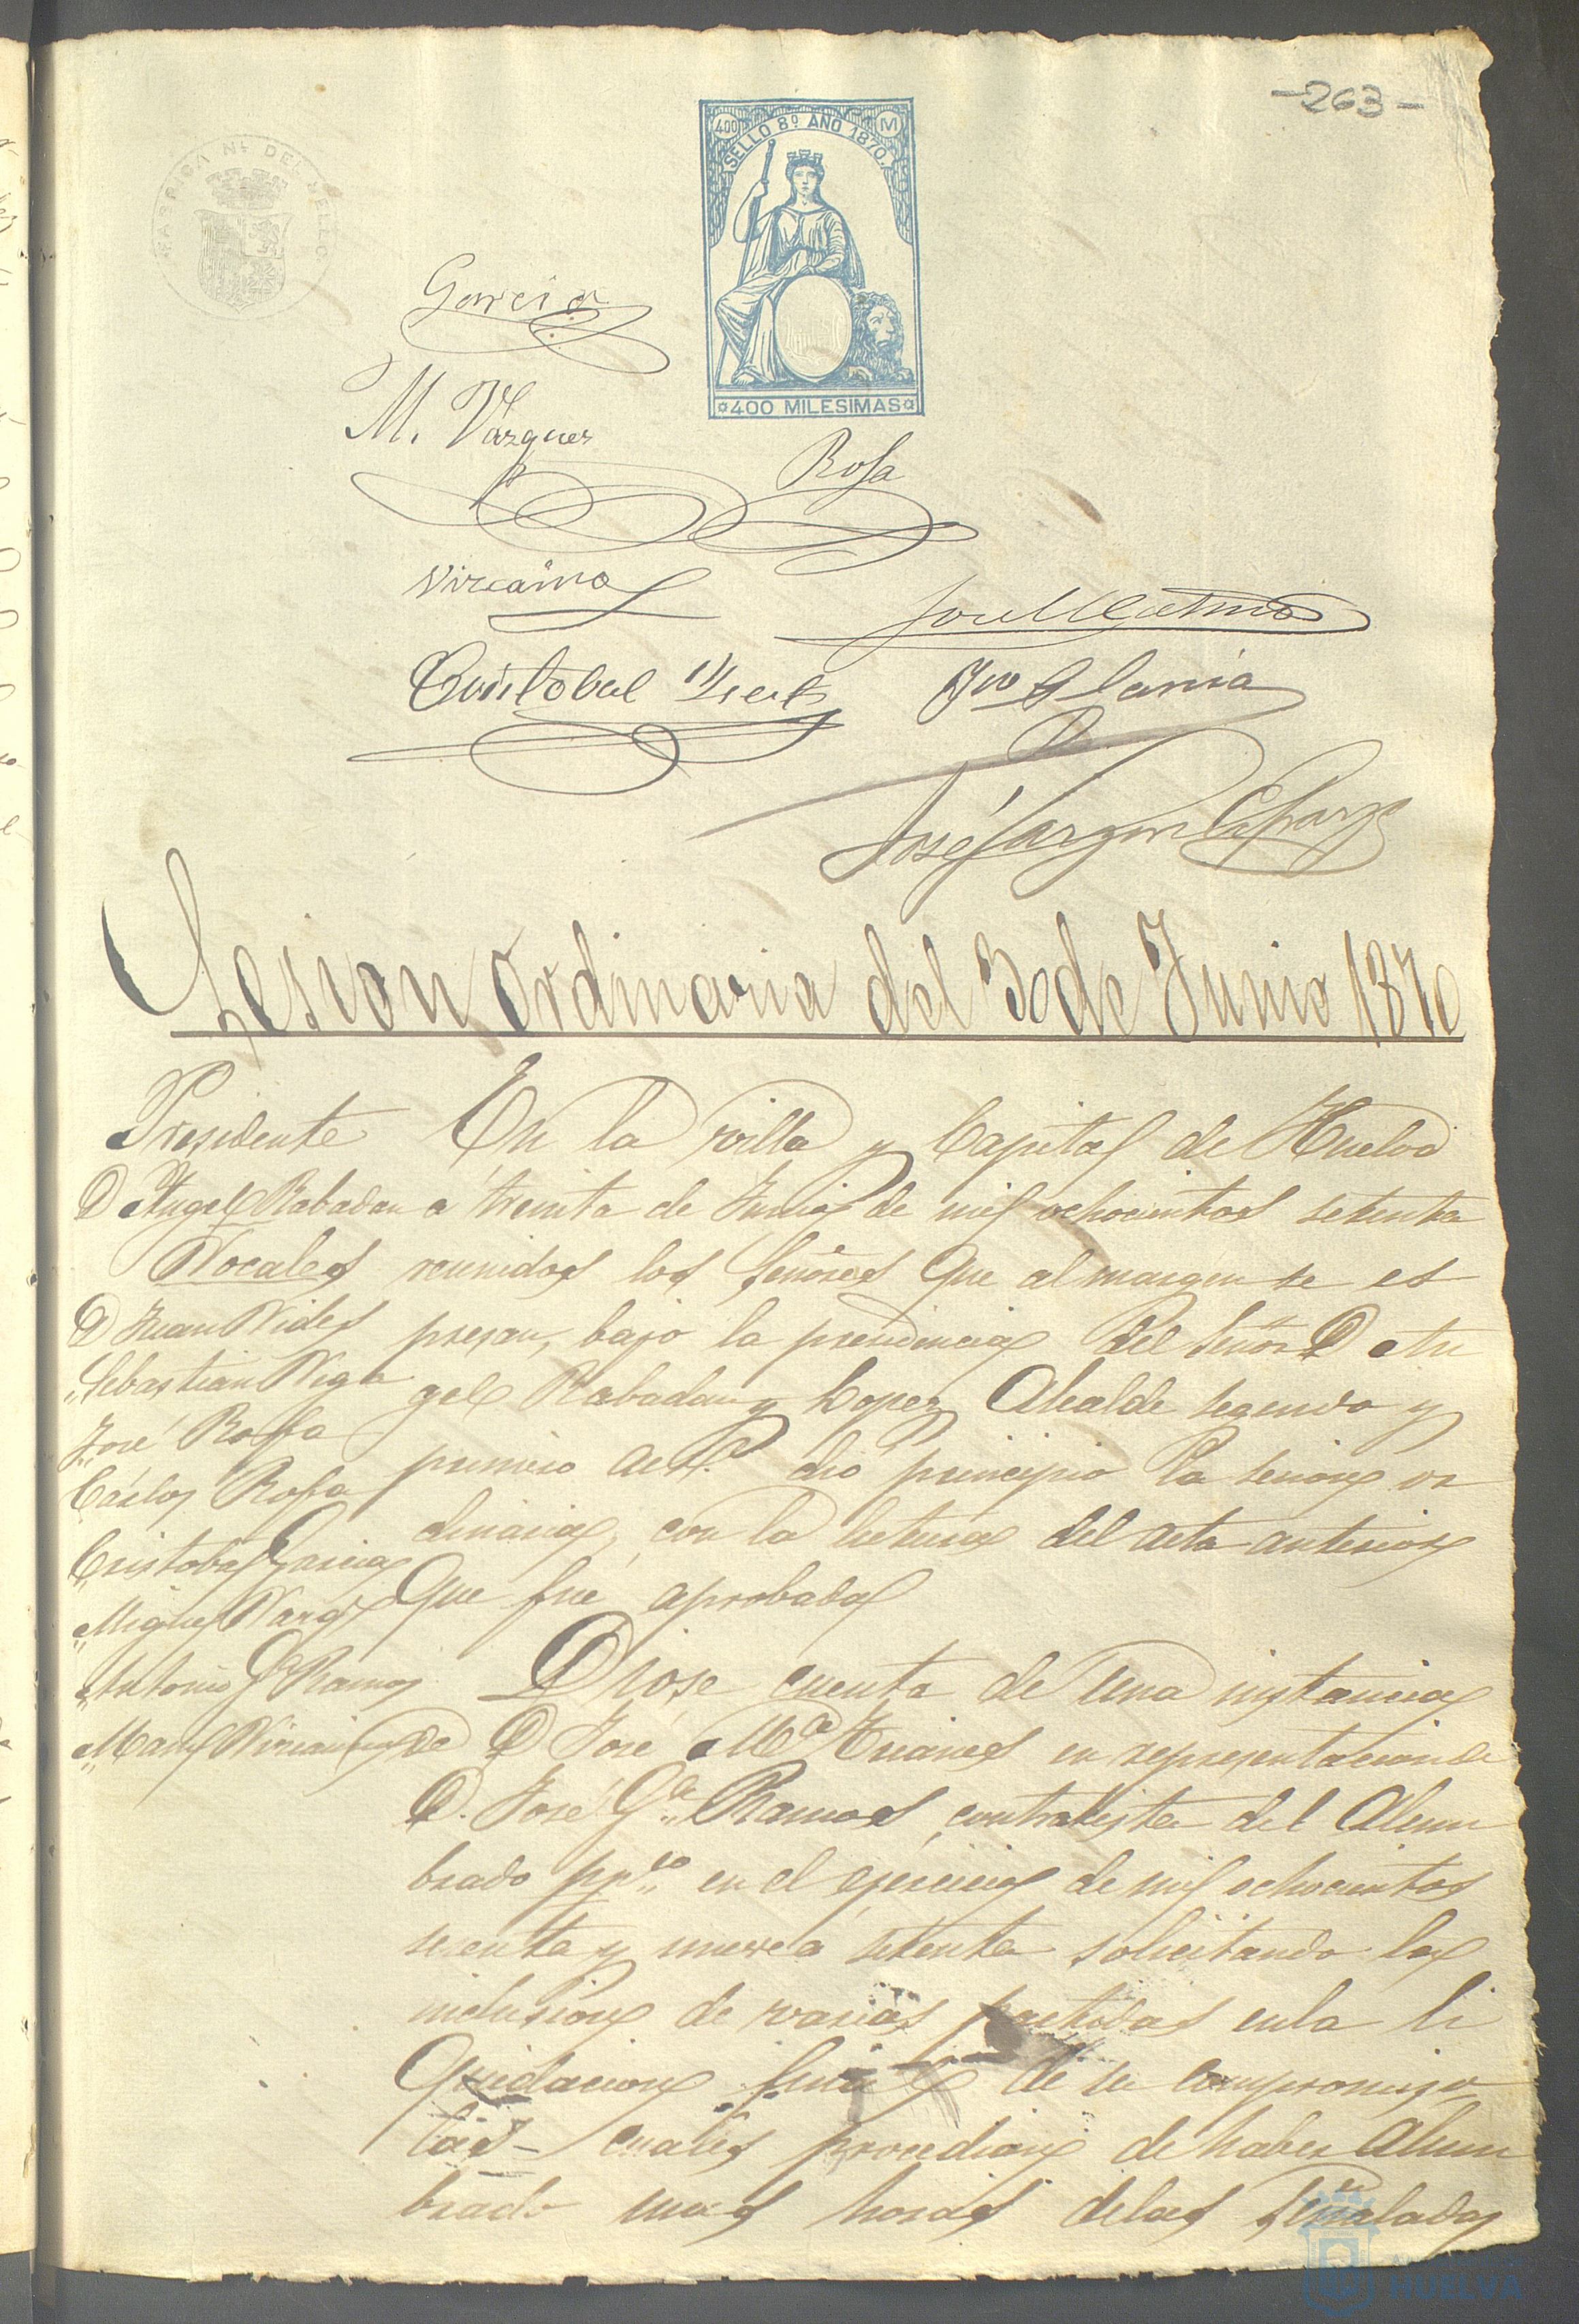 -263-
FABRICA Nl. DEL SELLO
400 M
SELLO 8º AÑO 1870.
400 MILESIMAS
Garcia
M. Vazquez
Rofa
Vizcaino
Cristobal
José Garzon
Sesion ordinaria del 30 de Junio 1870
Presidente
D Angel Rabadan
Vocales
D Juan Vides
" Sebastian Vega
" José Rofa
Cárlos Rofa
Cristobal Garcia
" Miguel Vazqz
" Antonio G Ramos
" Manl Vizcaino
En la villa y Capital de Huelva
a treinta de Junio de mil ochocientos setenta
reunidos los Señores que al margen se es
presan, bajo la presidencia del Señor D An
gel Rabadan y Lopez Alcalde segundo y
primero actl. dió principio la sesion or
dinaria, con la lectura del acta anterior
que fue aprobada
Diose cuenta de una instancia
de D José Ma Trianes en representacion de
D. José Ga Ramos, contratista del Alum
brado ppco en el egercicio de mil ochocientos
sesenta y nueve a setenta solicitando la
inclusion de varias partidas en la li
quidacion final de su compromiso
las cuales procedian de haber Alum
brado mas horas de las señaladas
HUELVA